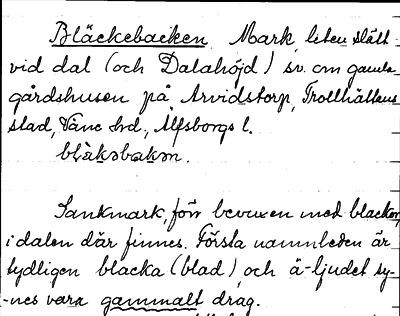 Bläckebacken, Mark, liten slätt
vid dal (och Dalahöjd) sv. om gamla
gårdshusen på Arvidstorp, Trollhättans
stad, Väne hd, Älfsborgs l.
blàkəbakən.
Sankmark, förr bevuxen med blackor,
i dalen där finnes. Första namnleden är
tydligen blacka (blad), och ä-ljudet sy-
-nes vara gammalt drag.